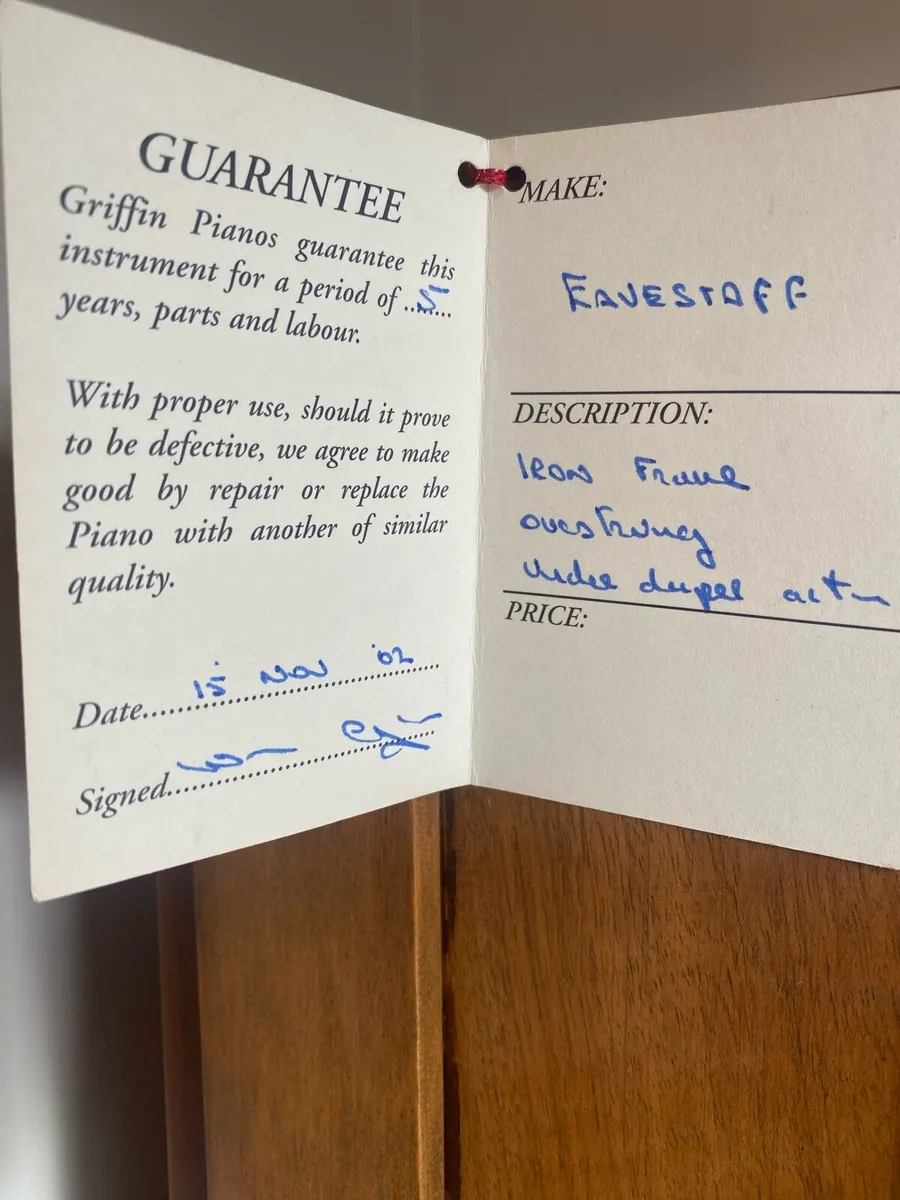 GUARANTEE
Griffin Pianos guarantee this
instrument for a period of ..5....
years, parts and labour.
With proper use, should it prove
to be defective, we agree to make
good by repair or replace the
Piano with another of similar
quality.
Date..... 15 NOV '02
Signed.....
MAKE:
EAVESTAFF
DESCRIPTION:
IRON Frame
overstrung
under damper action
PRICE: